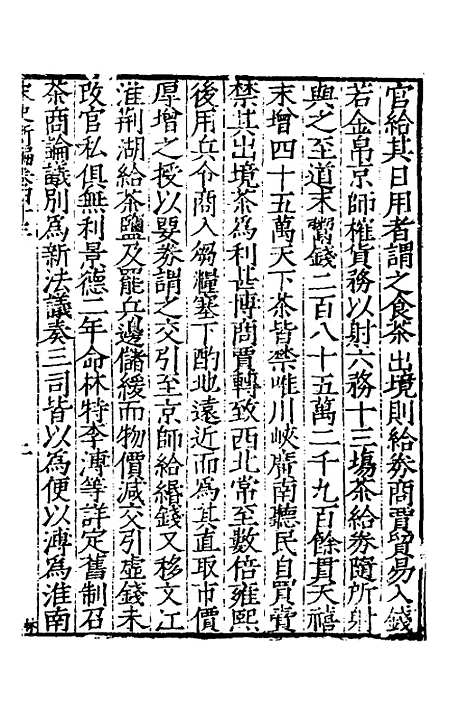 官給其日用者謂之食茶出境則給券商賈貿易入錢
若金帛京師榷貨務以射六務十三塲茶給券隨所射
與之至道末鬻錢二百八十五萬二千九百餘貫天禧
末增四十五萬天下茶皆禁唯川峽廣南聽民自買賣
禁其出境茶爲利甚博商賈轉致西北常至數倍雍熙
後用兵令商入芻糧塞下酌地遠近而爲其直取市價
厚增之授以要券謂之交引至京師給緡錢又移文江
淮荆湖給茶鹽及罷兵邊儲緩而物價减交引虛錢未
改官私俱無利景德二年命林特李溥等詳定舊制召
茶商論議別爲新法議奏三司皆以爲便以溥爲淮南
宋史新編卷四十三